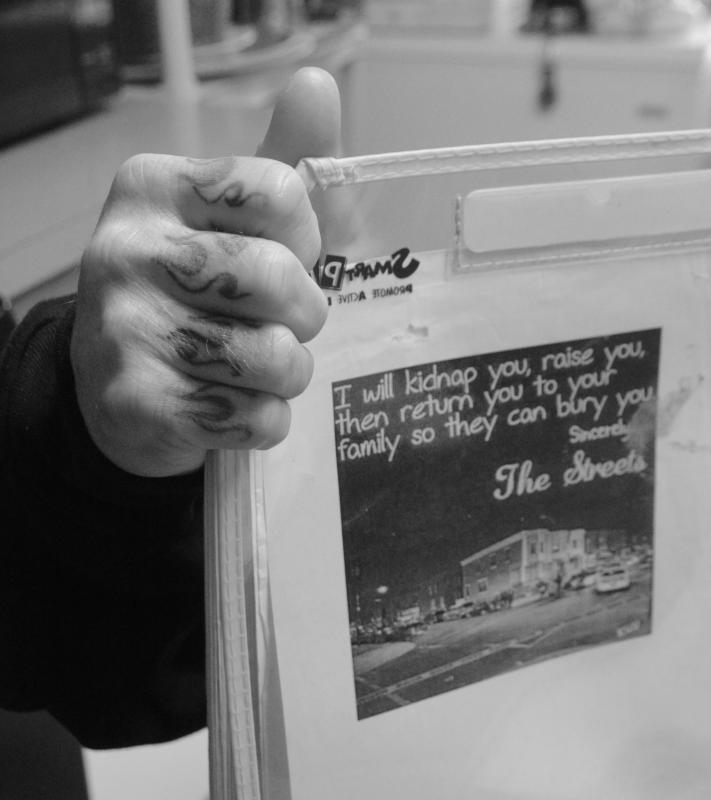 SMART P
PROMOTE ACTIVE
I will kidnap you, raise you,
then return you to your
family so they can bury you
Sincerely
The Streets